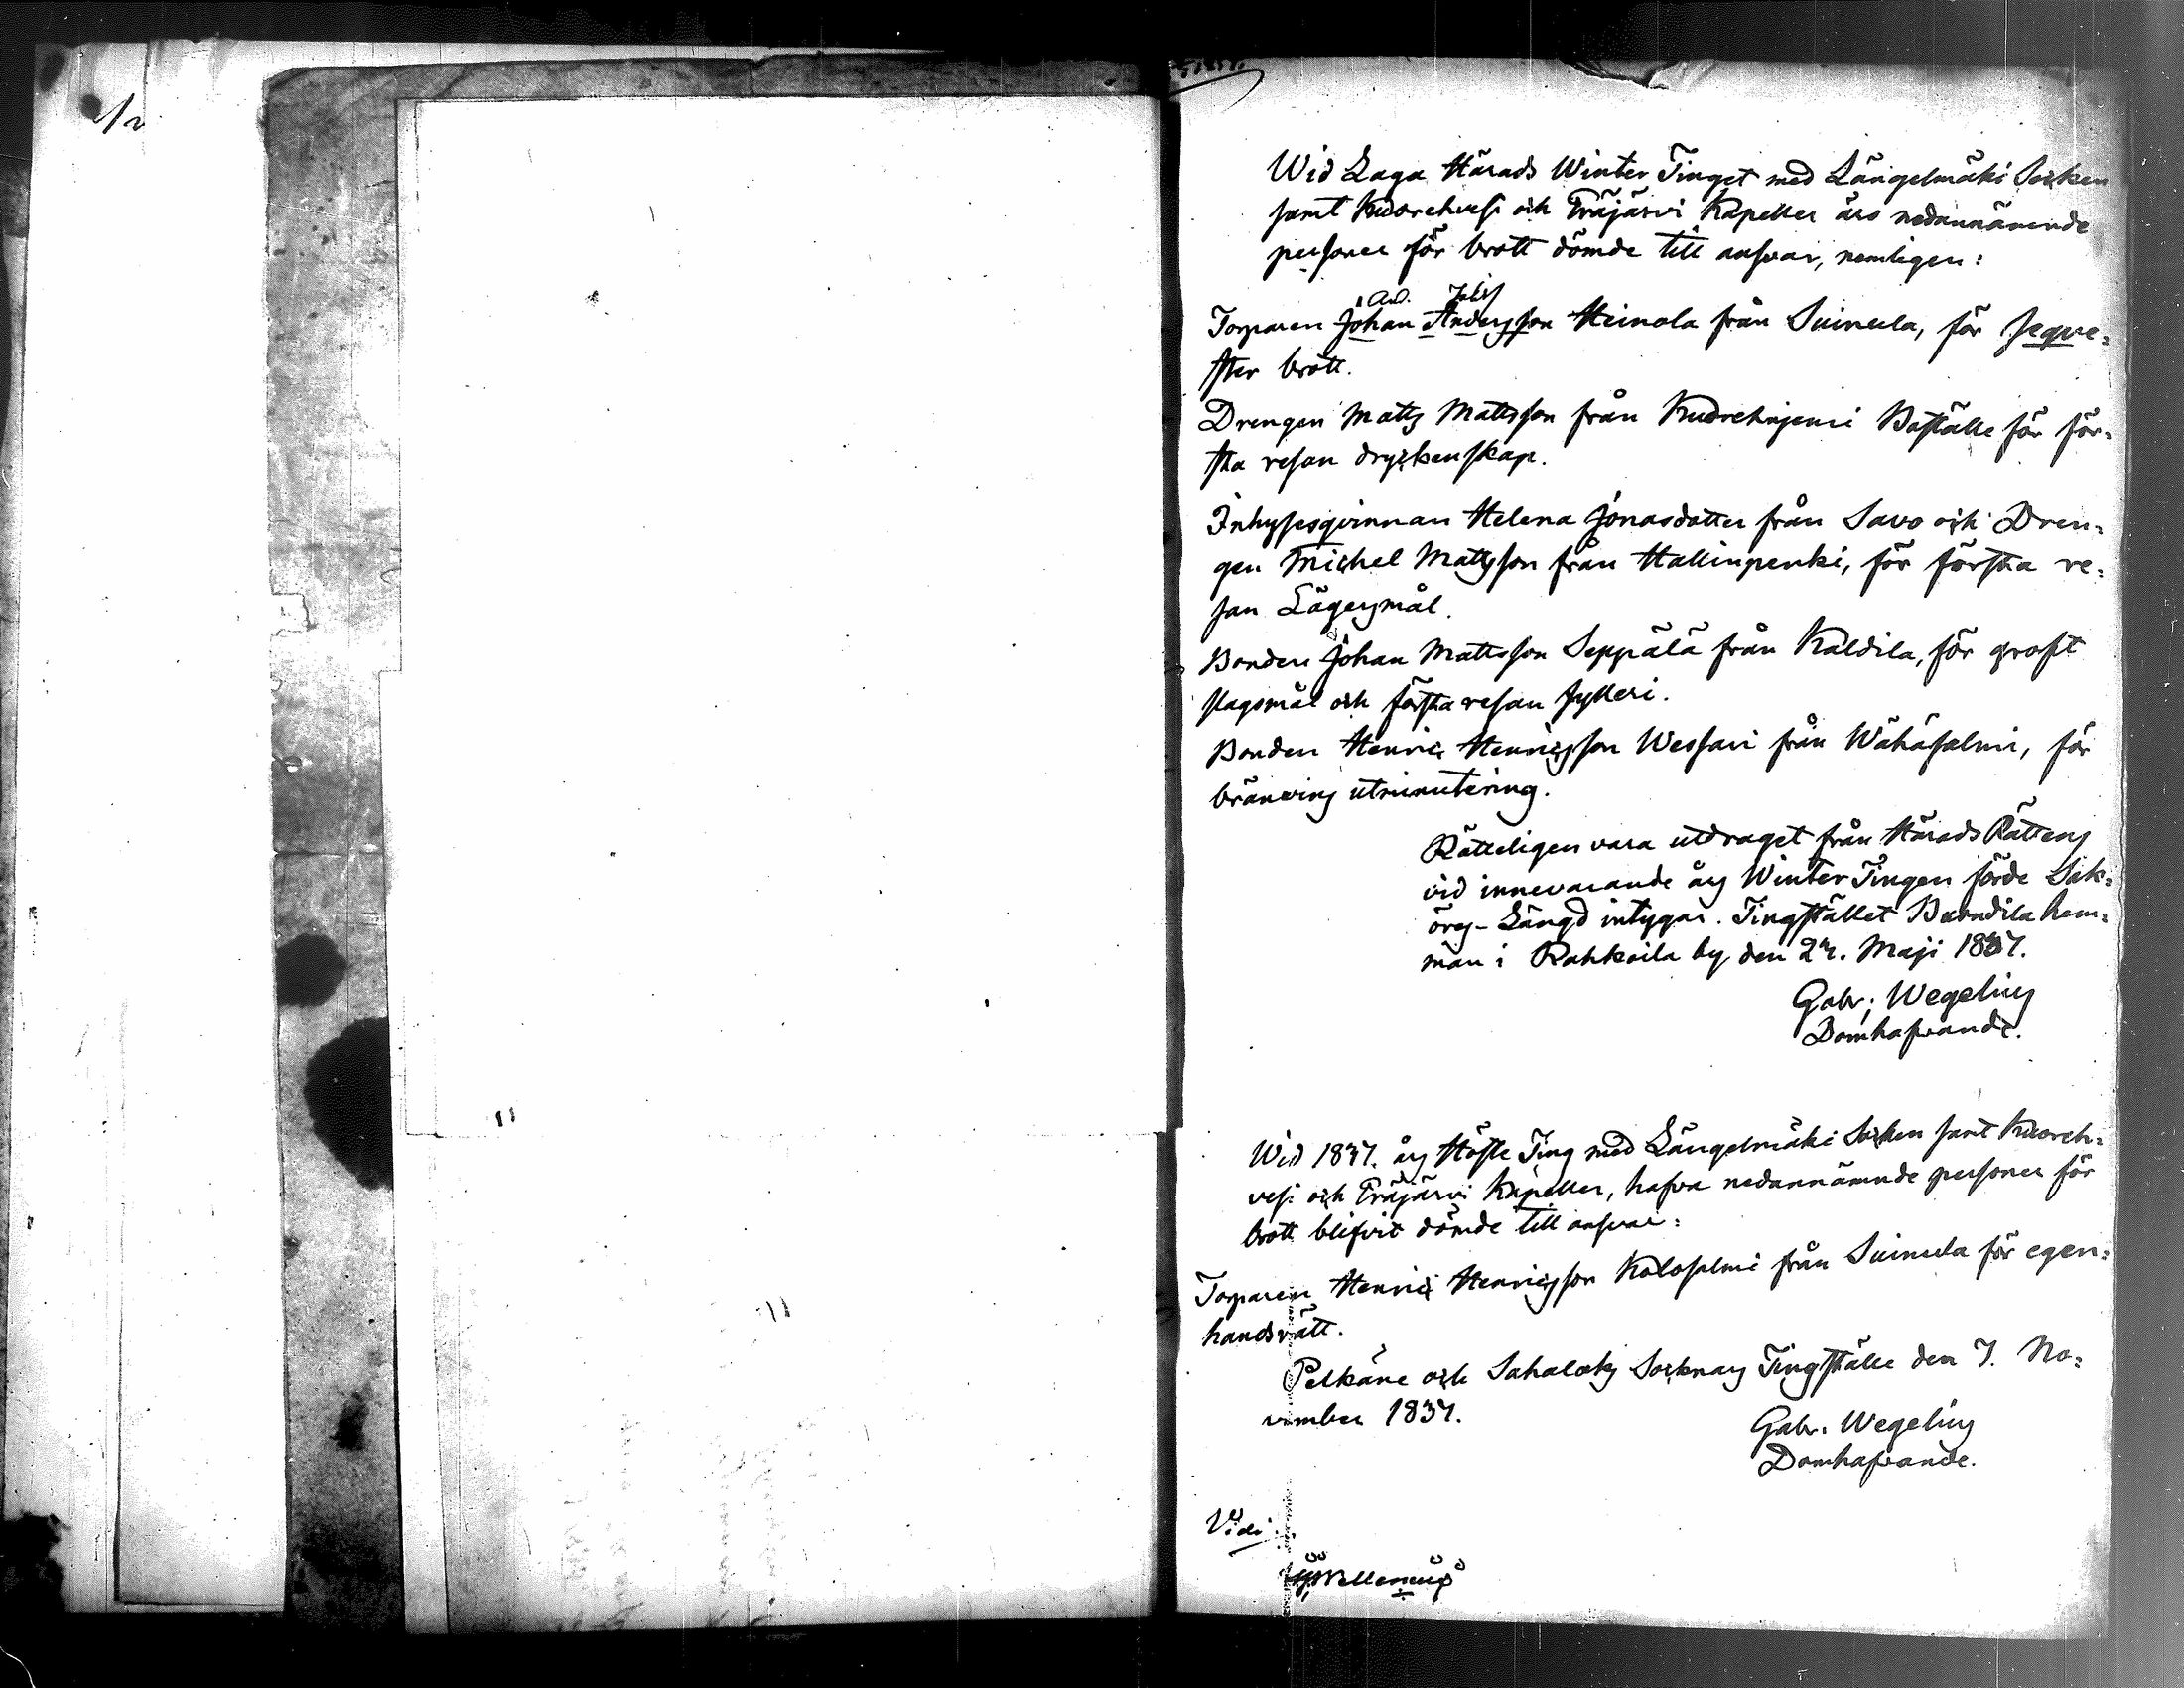 Wid Laga Härads Winter Tinget med Längelmäki Socken
samt Kuorehvesi och Eräjärvi Kapeller äro nedannämnde
personer för brott dömde till ansvar, nemligen:
And. Johs
Torparen Johan Andersson Heinola från Suinula, för seqve-
ster brott.
Drengen Matts Mattsson från Kuorehnjemi Boställe för för-
sta resan dryckenskap.
Inhysesqvinnan Helena Jonasdotter från Savo och Dren-
gen Michel Mattsson från Hallinpenki, för första re-
san Lägersmål.
Bonden Johan Mattsson Seppälä från Kaldila, för groft
slagsmål och första resan fylleri.
Bonden Henric Henricsson Wessari från Wähäsalmi, för
bränvins utminutering.
Rätteligen vara utdraget från Härads Rättens
vid innevarande års Winter Tingen förde Sak-
öres-Längd intygar. Tingstället Barndila hem-
man i Rahkoila by den 2 Maji 1837.
Gabr: Wegelius
Domhafvande.
Wid 1837. års Höste Ting med Längelmäki Socken samt Kuoreh-
vesi och Eräjärvi Kapeller, hafva nedannämnde personer för
brott blifvit dömde till ansvar:
Torparen Henric Henricsson Kolosalmi från Suinula för egen-
handsrätt.
Pelkäne och Sahalaks Socknars Tingställe den 7. No-
vember 1837.
Gabr. Wegelius
Domhafvande.
Vidi